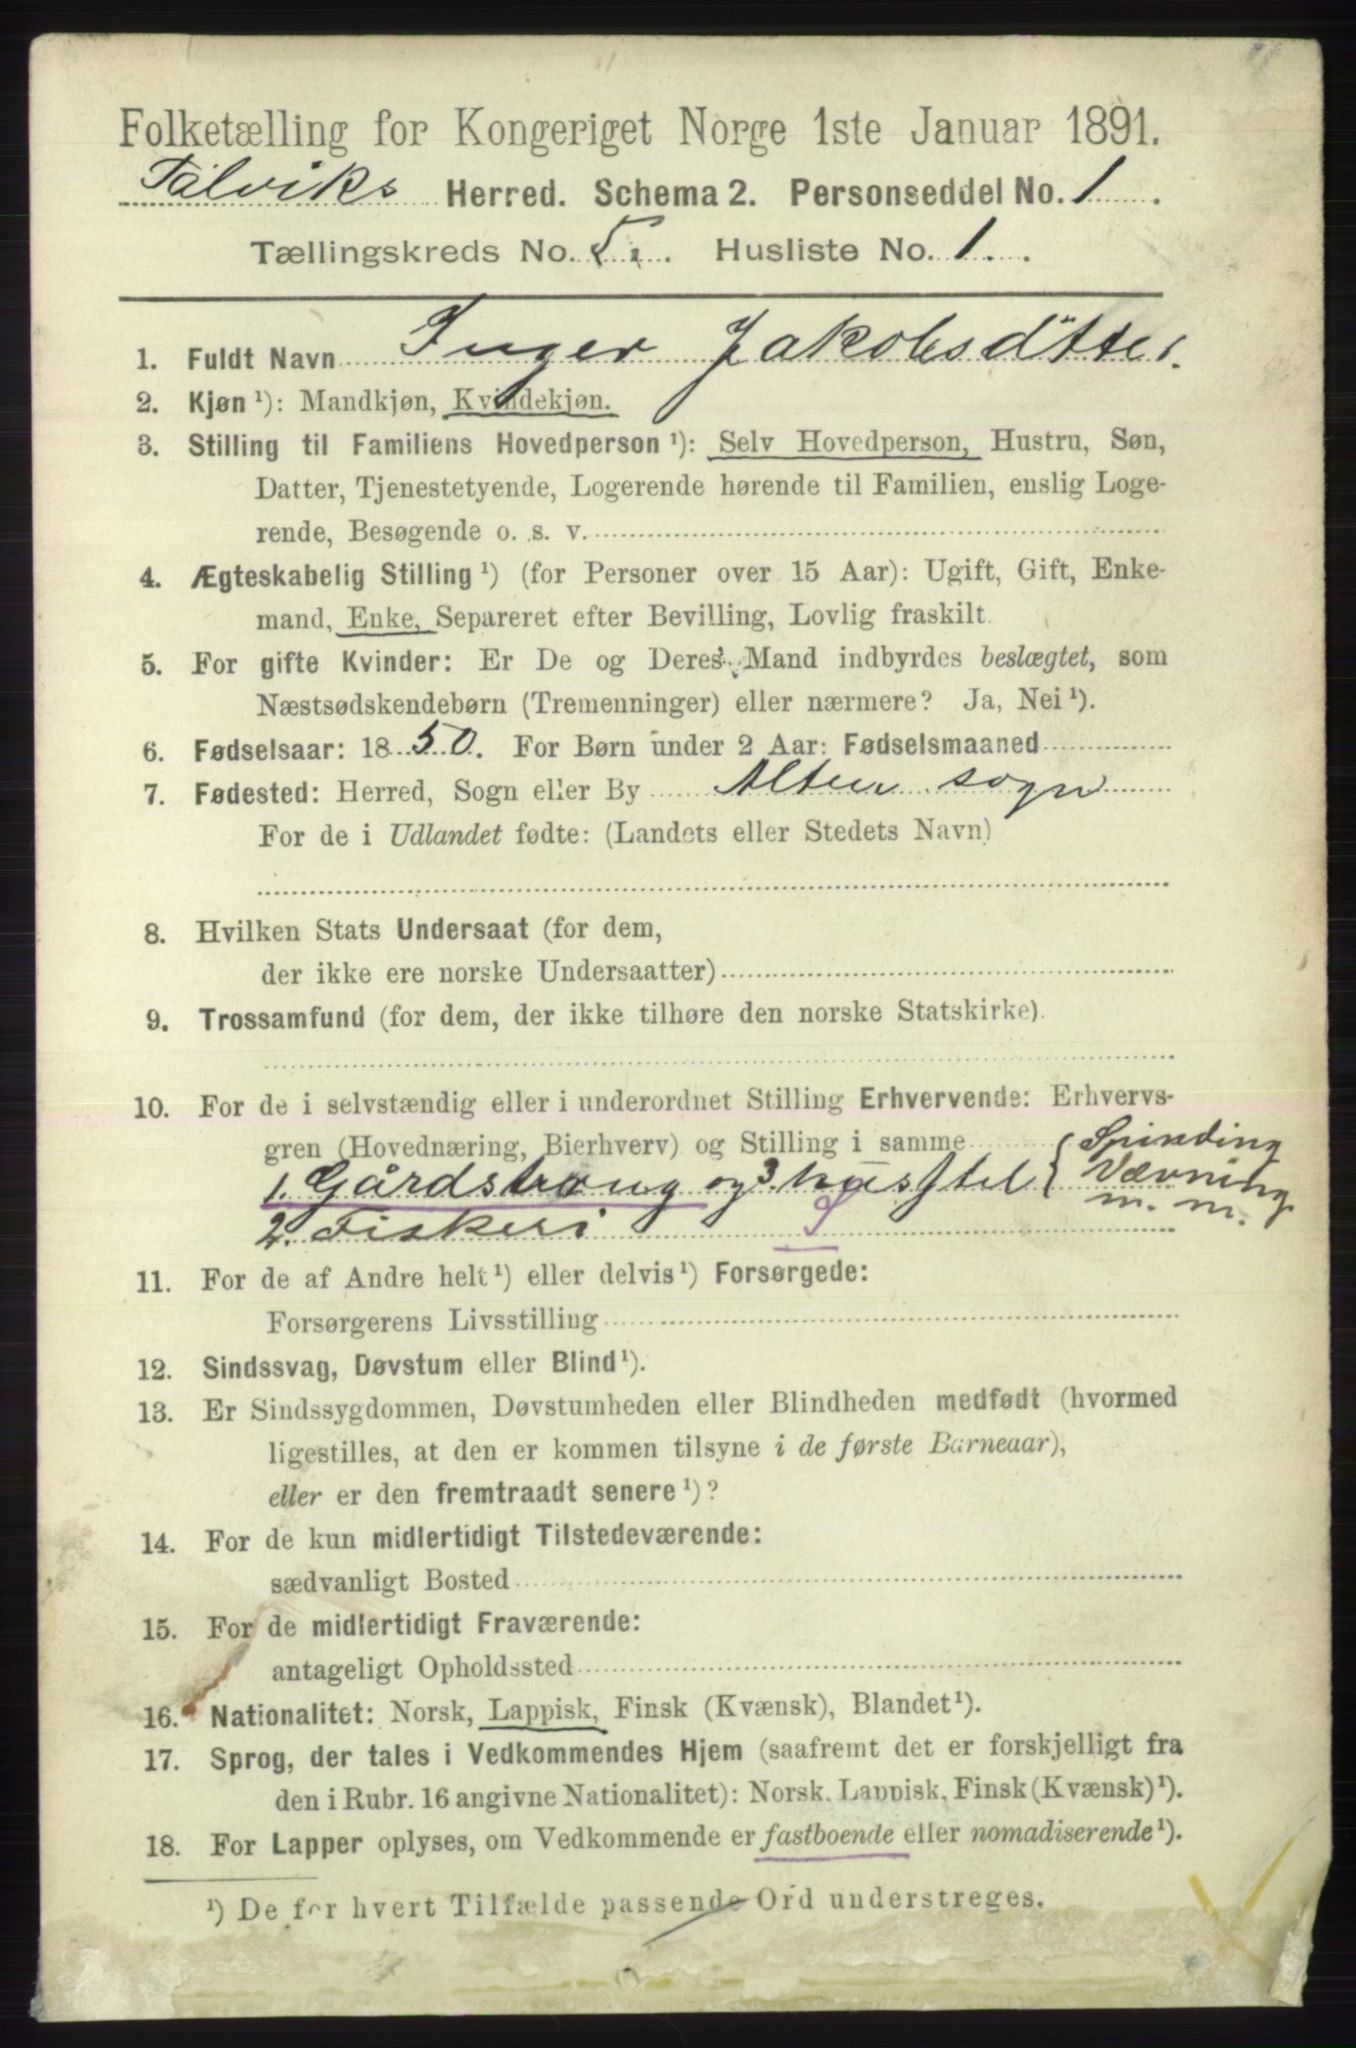 Folketælling for Kongeriget Norge 1ste Januar 1891.
Talviks Herred. Schema 2. Personseddel No. 1.
Tællingskreds No. 5. Husliste No. 1.
1. Fuldt Navn Inger Jakobsdtter.
2. Kjøn ¹): Mandkjøn, Kvindekjøn.
3. Stilling til Familiens Hovedperson ¹): Selv Hovedperson, Hustru, Søn,
Datter, Tjenestetyende, Logerende hørende til Familien, enslig Loge-
rende, Besøgende o. s. v.
4. Ægteskabelig Stilling ¹) (for Personer over 15 Aar): Ugift, Gift, Enke-
mand, Enke, Separeret efter Bevilling, Lovlig fraskilt
5. For gifte Kvinder: Er De og Deres Mand indbyrdes beslægtet, som
Næstsødskendebørn (Tremenninger) eller nærmere? Ja, Nei ¹).
6. Fødselsaar: 1850. For Børn under 2 Aar: Fødselsmaaned
7. Fødested: Herred, Sogn eller By Alten sogn
For de i Udlandet fødte: (Landets eller Stedets Navn)
8. Hvilken Stats Undersaat (for dem,
der ikke ere norske Undersaatter)
9. Trossamfund (for dem, der ikke tilhøre den norske Statskirke).
10. For de i selvstændig eller i underordnet Stilling Erhvervende: Erhvervs-
gren (Hovednæring, Bierhverv) og Stilling i samme
1. Gårdsbrug og 3. husftel { Spinding
Vævning
m. m.
2. Fiskeri S
11. For de af Andre helt ¹) eller delvis ¹) Forsørgede:
Forsørgerens Livsstilling
12. Sindssvag, Døvstum eller Blind ¹).
13. Er Sindssygdommen, Døvstumheden eller Blindheden medfødt (hvormed
ligestilles, at den er kommen tilsyne i de første Barneaar),
eller er den fremtraadt senere ¹)?
14. For de kun midlertidigt Tilstedeværende:
sædvanligt Bosted
15. For de midlertidigt Fraværende:
antageligt Opholdssted
16. Nationalitet: Norsk, Lappisk, Finsk (Kvænsk), Blandet ¹).
17. Sprog, der tales i Vedkommendes Hjem (saafremt det er forskjelligt fra
den i Rubr. 16 angivne Nationalitet): Norsk, Lappisk, Finsk (Kvænsk) ¹).
18. For Lapper oplyses, om Vedkommende er fastboende eller nomadiserende ¹).
¹) De for hvert Tilfælde passende Ord understreges.